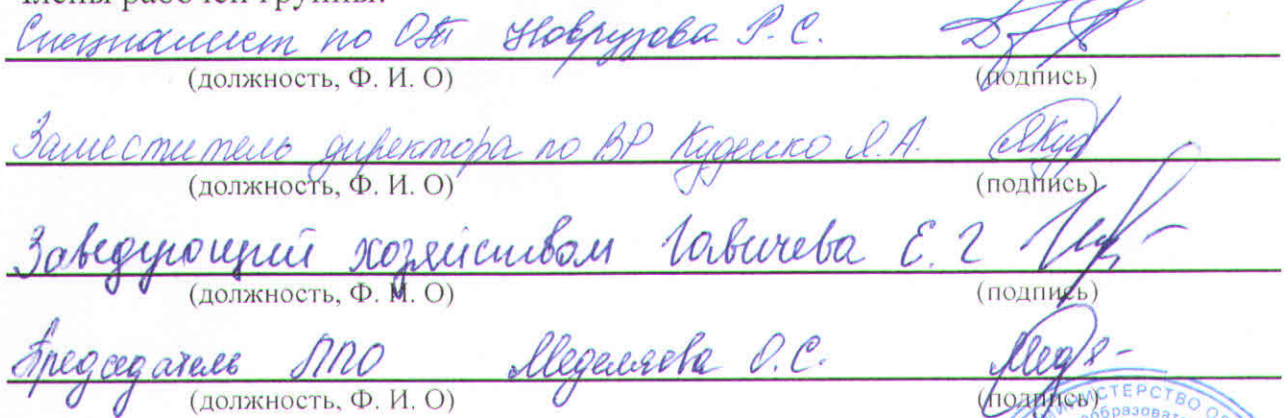 Члены рабочей группы:
Специалист по ОТ Новрузова Р.С.
(должность, Ф. И. О) (подпись)
Заместитель директора по ВР Куденко Я.А.
(должность, Ф. И. О) (подпись)
Заведующий хозяйством Гавичева Е.Г
(должность, Ф. И. О) (подпись)
Председатель ППО Меделяева О.С.
(должность, Ф. И. О) (подпись)